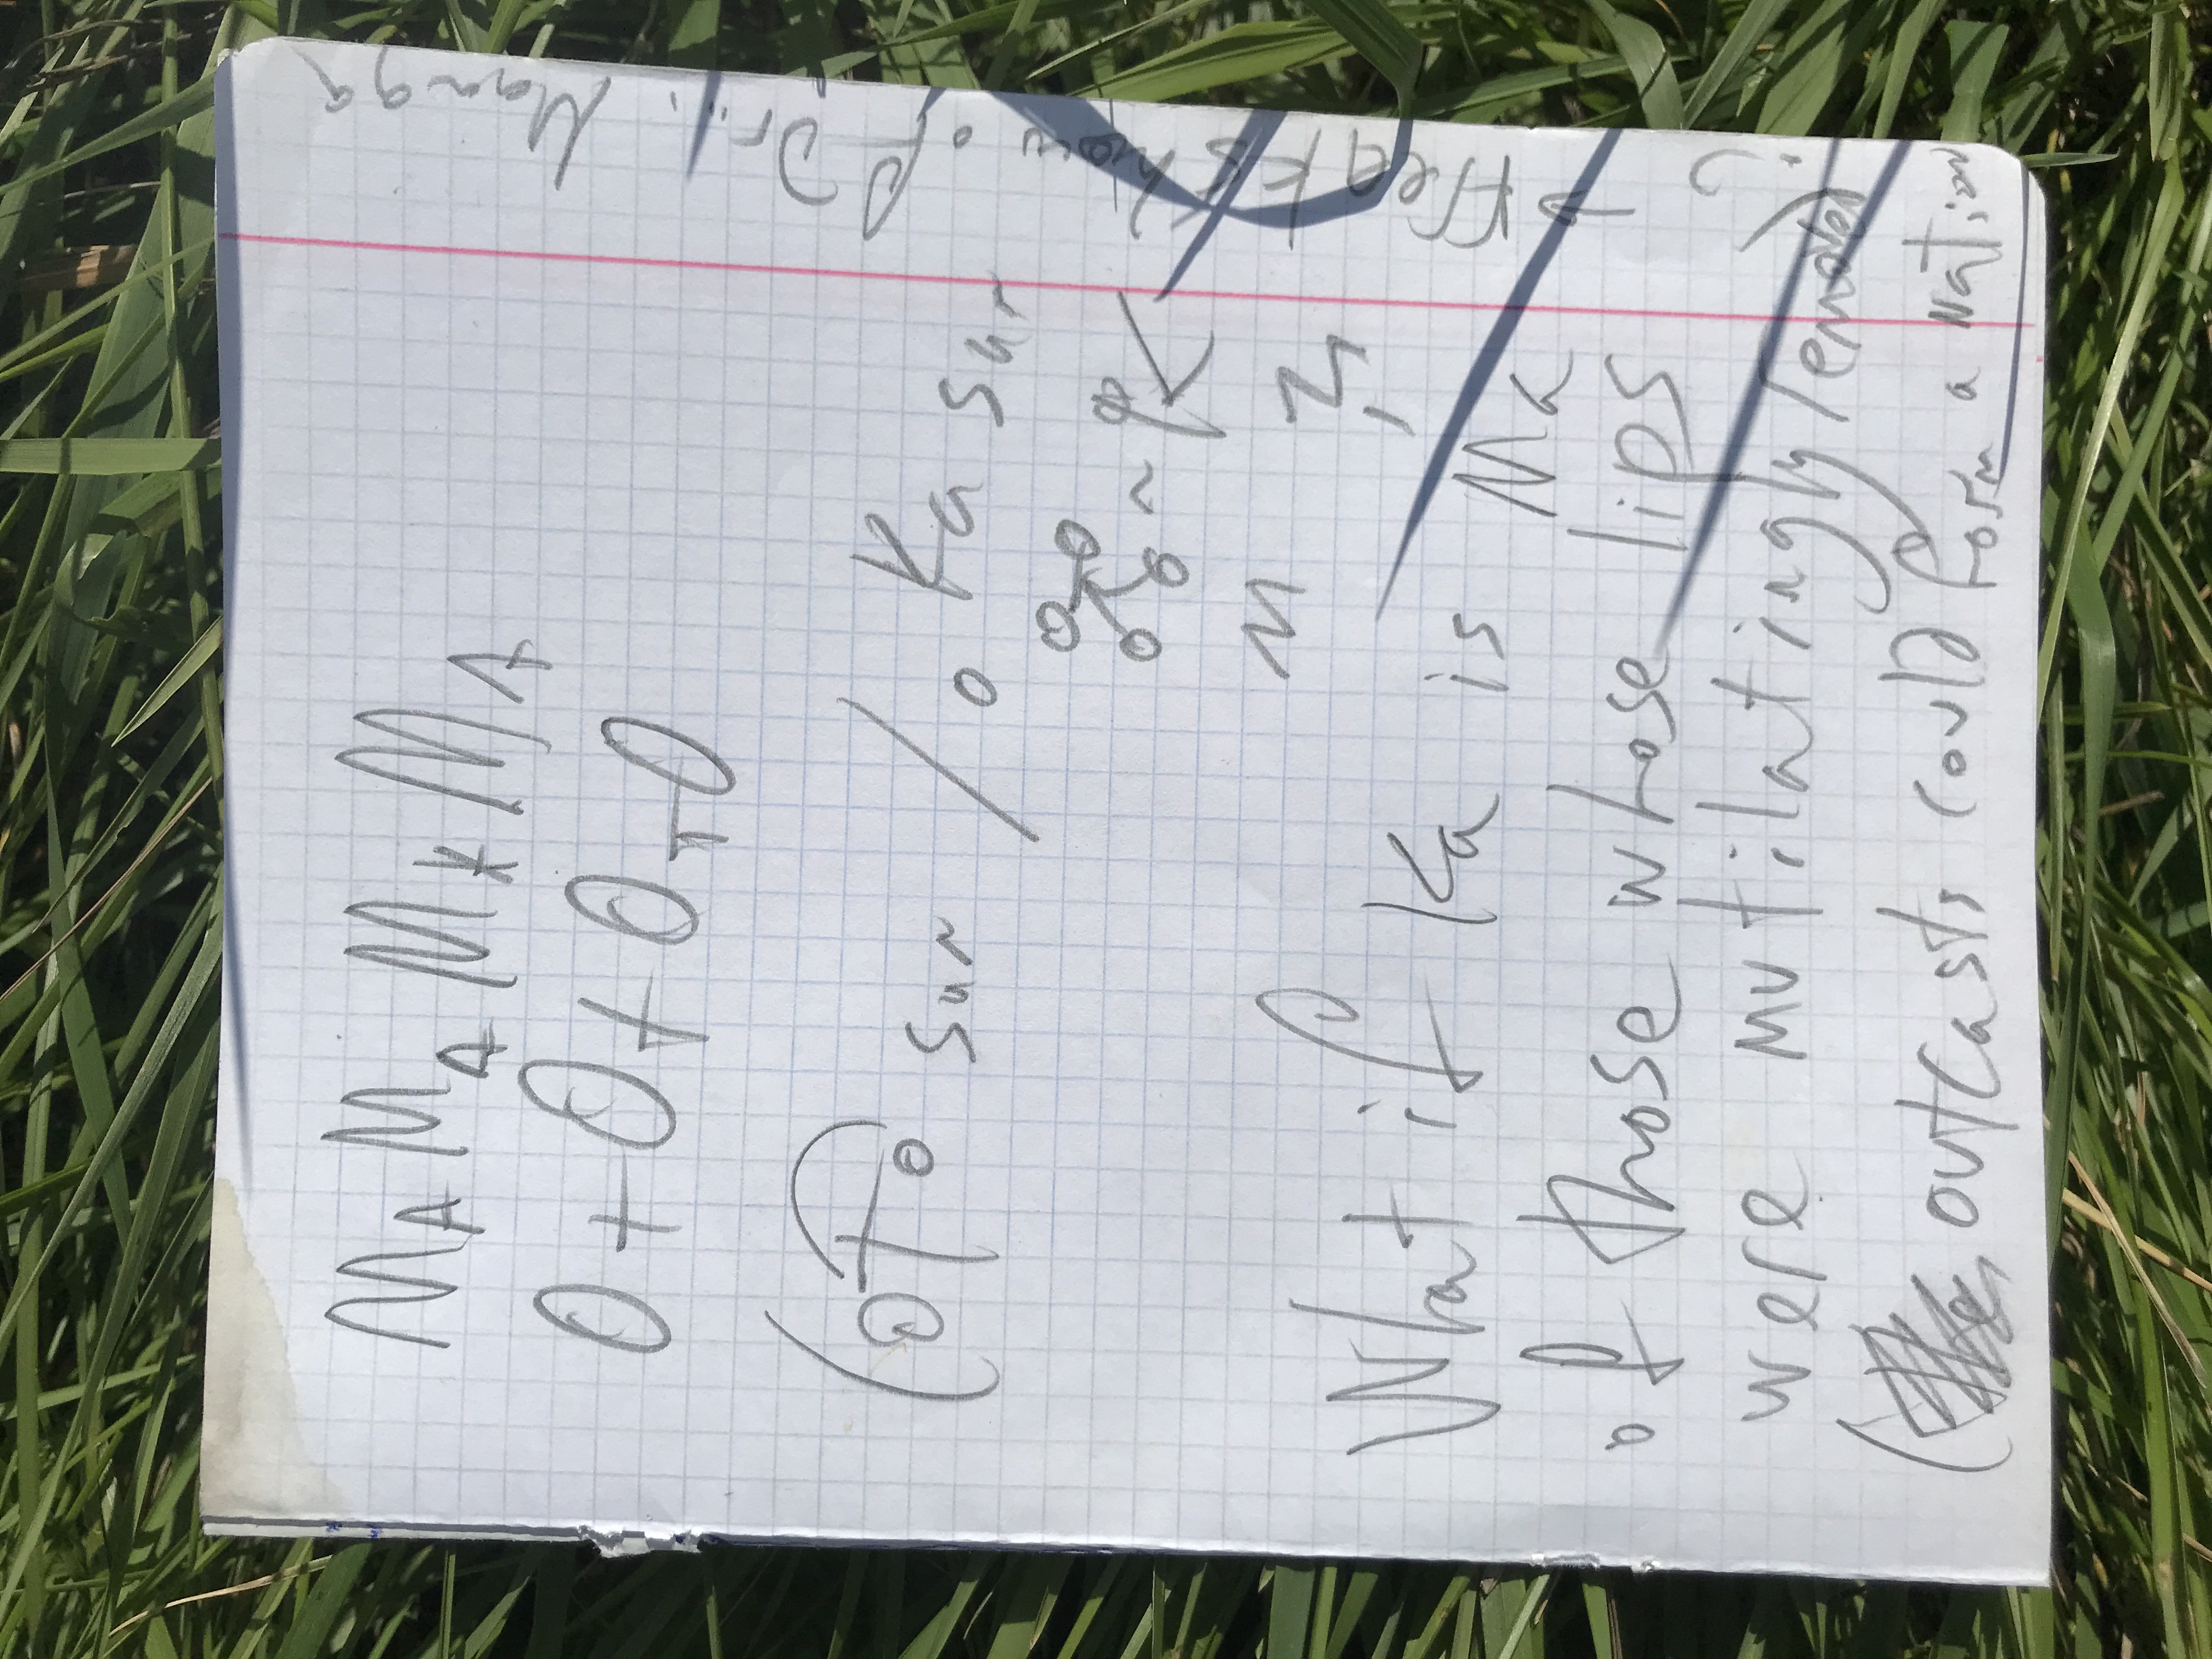 MAMAMKMA
O+O+OTO
(OTO sun / o Ka sun
~ K
M
What if Ka is Ma
of those whose lips
were mutilatingly removed?
(outcasts could form a nation
→ ffreakshow of Dr... Manga